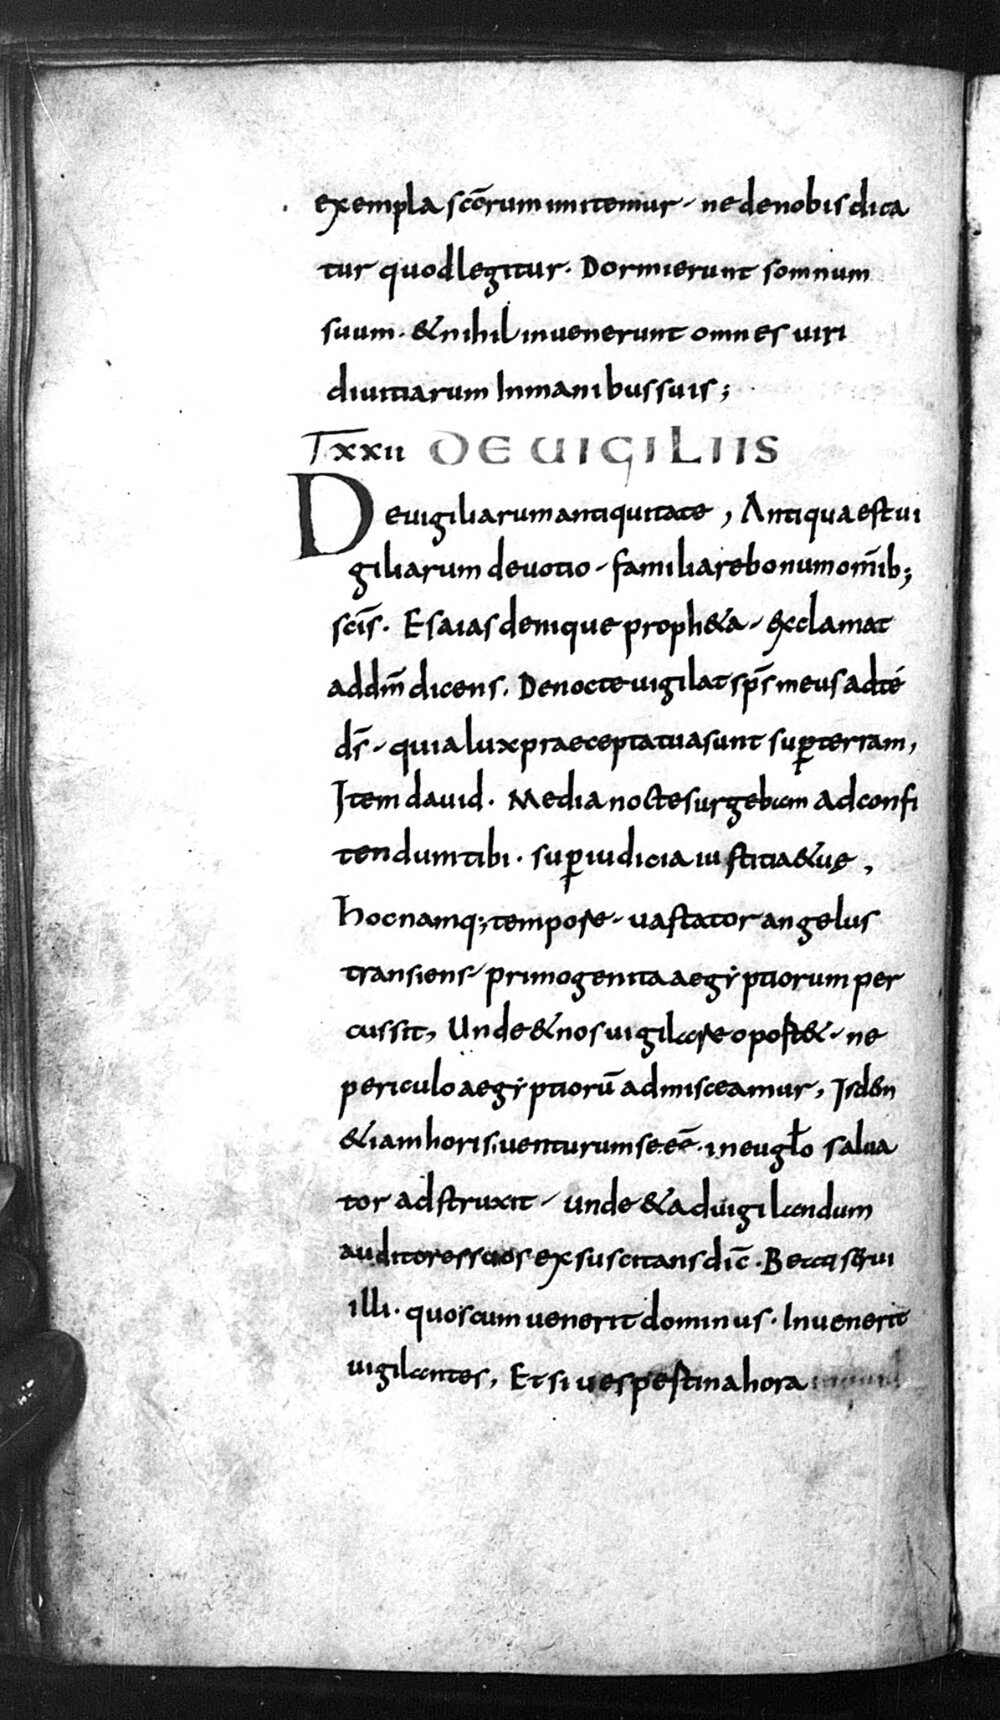 exempla scōrum imitemur · ne de nobis dica
tur quod legitur · Dormierunt somnum
suum · & nihil invenerunt omnes viri
divitiarum In manibus suis ;
T xxii DE UIGILIIS
De vigiliarum antiquitate , Antiqua est vi
giliarum devotio · familiare bonum om̄ib;
scīs · Esaias denique proph&a · exclamat
ad dm̄ dicens . De nocte vigilat sps̄ meus ad té
ds̄ · quia lux praecepta tua sunt sup̱ terram ,
Item david · Media nocte surgebam ad confi
tendum tibi · sup̱ iudicia iustitia&uę ,
Hoc namq; tempore · vastator angelus
transiens · primogenita aegẏptiorum per
cussit , Unde & nos vigilare oport& · ne
periculo aegẏptiorū admisceamur , Isdēn
& iam horis venturum se eē · in eugƚo salva
tor adstruxit · unde & ad vigilandum
auditores suos exsuscitans dic̄ · Beati servi
illi · quos cum venerit dominus · Invenerit
vigilantes , Et si vespertina hora